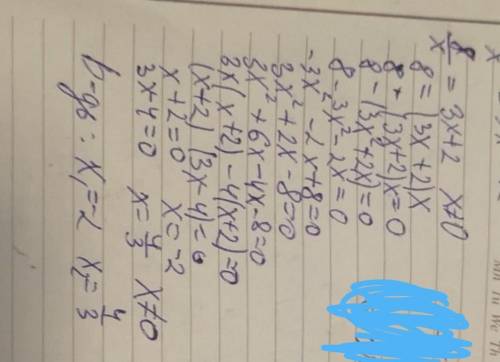 8/x = 3x+2 x≠0
8 = (3x+2)x
8 - (3x+2)x=0
8 - (3x²+2x)=0
8-3x²-2x=0
-3x²-2x+8=0
3x²+2x-8=0
3x²+6x-4x-8=0
3x(x+2)-4(x+2)=0
(x+2)(3x-4)=0
x+2=0 x=-2
3x+4=0 x=4/3 x≠0
b-gö: x₁=-2 x₂=4/3